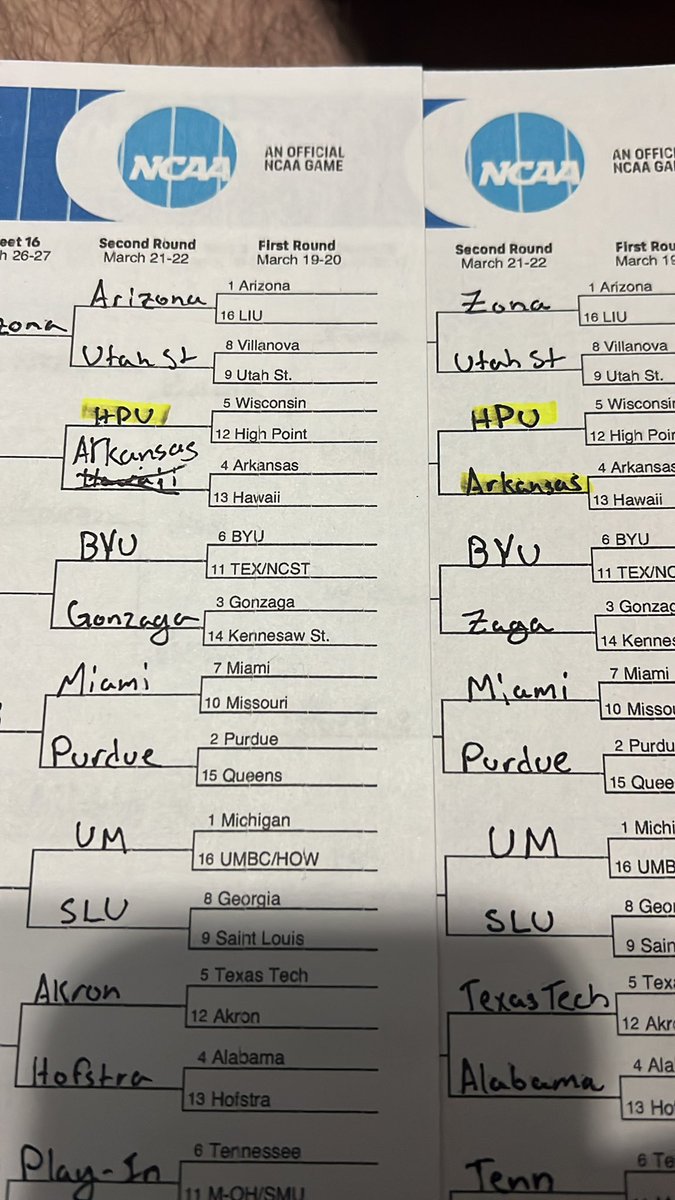 NCAA
AN OFFICIAL
NCAA GAME
eet 16
h 26-27
Second Round
March 21-22
First Round
March 19-20
zona
Arizona
1 Arizona
16 LIU
Utah St
8 Villanova
9 Utah St.
HPU
5 Wisconsin
12 High Point
Arkansas
Hawaii
4 Arkansas
13 Hawaii
BYU
6 BYU
11 TEX/NCST
Gonzaga
3 Gonzaga
14 Kennesaw St.
Miami
7 Miami
10 Missouri
Purdue
2 Purdue
15 Queens
UM
1 Michigan
16 UMBC/HOW
SLU
8 Georgia
9 Saint Louis
Akron
5 Texas Tech
12 Akron
Hofstra
4 Alabama
13 Hofstra
Play-In
6 Tennessee
11 M-OH/SMU
NCAA
AN OFFIC
NCAA GA
Second Round
March 21-22
First Rou
March 19
Zona
1 Arizona
16 LIU
Utah St
8 Villanova
9 Utah St.
HPU
5 Wisconsin
12 High Poin
Arkansas
4 Arkansas
13 Hawaii
BYU
6 BYU
11 TEX/NC
Zaga
3 Gonzag
14 Kennes
Miami
7 Miami
10 Missou
Purdue
2 Purdu
15 Quee
UM
1 Michi
16 UMB
SLU
8 Geor
9 Sain
Texas Tech
5 Texa
12 Akr
Alabama
4 Ala
13 Ho
Tenn
6 Te